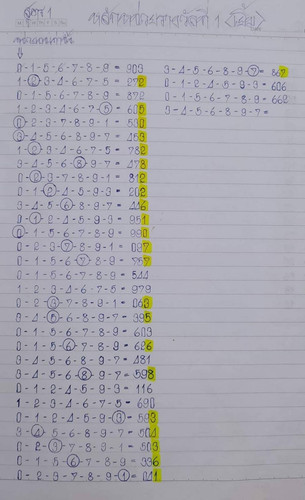 0-1-5-6-7-8-9 = 909
1-2-3-4-6-7-5 = 272
0-1-5-6-7-8-9 = 872
1-2-3-4-6-7-5 = 605
0-2-3-7-8-9-1 = 530
3-4-5-6-8-9-7 = 453
1-2-3-4-6-7-5 = 782
3-4-5-6-8-9-7 = 478
0-2-3-7-8-9-1 = 812
0-1-2-4-5-9-3 = 202
3-4-5-6-8-9-7 = 446
0-1-2-4-5-9-3 = 951
0-1-5-6-7-8-9 = 990
0-2-3-7-8-9-1 = 027
0-1-5-6-7-8-9 = 757
0-1-5-6-7-8-9 = 544
1-2-3-4-6-7-5 = 979
0-2-3-7-8-9-1 = 043
3-4-5-6-8-9-7 = 395
0-1-5-6-7-8-9 = 603
0-1-5-6-7-8-9 = 626
3-4-5-6-8-9-7 = 481
3-4-5-6-8-9-7 = 598
0-1-2-4-5-9-3 = 116
1-2-3-4-6-7-5 = 690
0-1-2-4-5-9-3 = 593
3-4-5-6-8-9-7 = 504
0-2-3-7-8-9-1 = 503
0-1-5-6-7-8-9 = 336
0-2-3-7-8-9-1 = 041
3-4-5-6-8-9-7 = 867
0-1-2-4-5-9-3 = 606
0-1-5-6-7-8-9 = 662
3-4-5-6-8-9-7 =